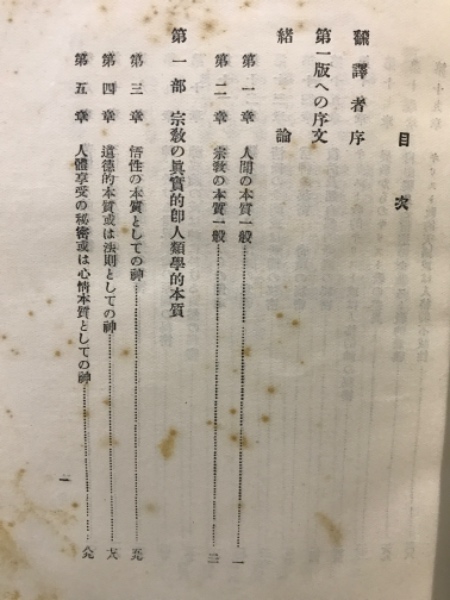 目次
飜譯者序
第一版への序文
緒論
第一章 人間の本質一般……一
第二章 宗敎の本質一般……三
第一部 宗敎の眞實的卽人類學的本質
第三章 悟性の本質としての神……
第四章 道德的本質或は法則としての神……
第五章 人體享受の秘密或は心情本質としての神……
二